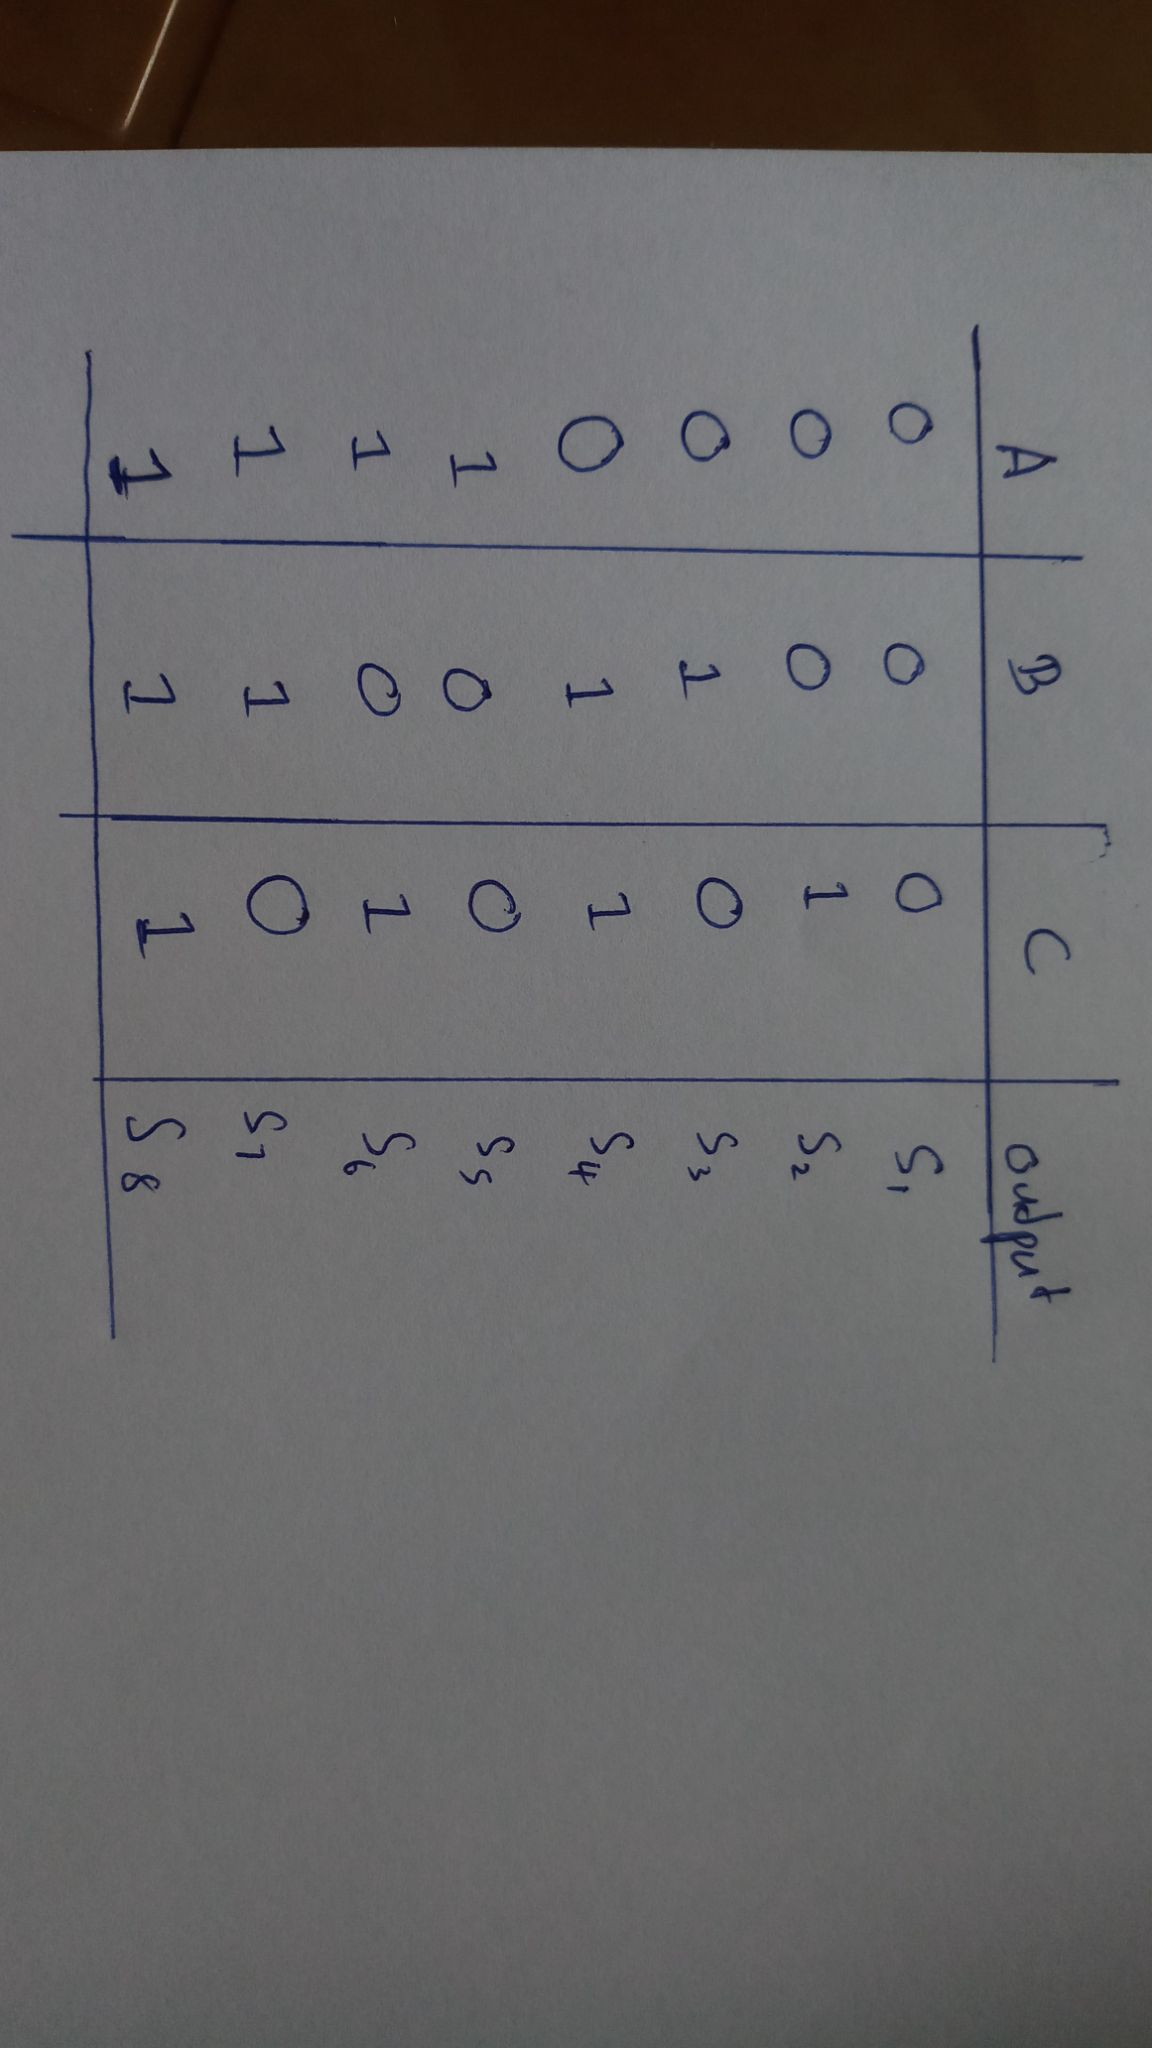 A B C output
0 0 0 S1
0 0 1 S2
0 1 0 S3
0 1 1 S4
1 0 0 S5
1 0 1 S6
1 1 0 S7
1 1 1 S8